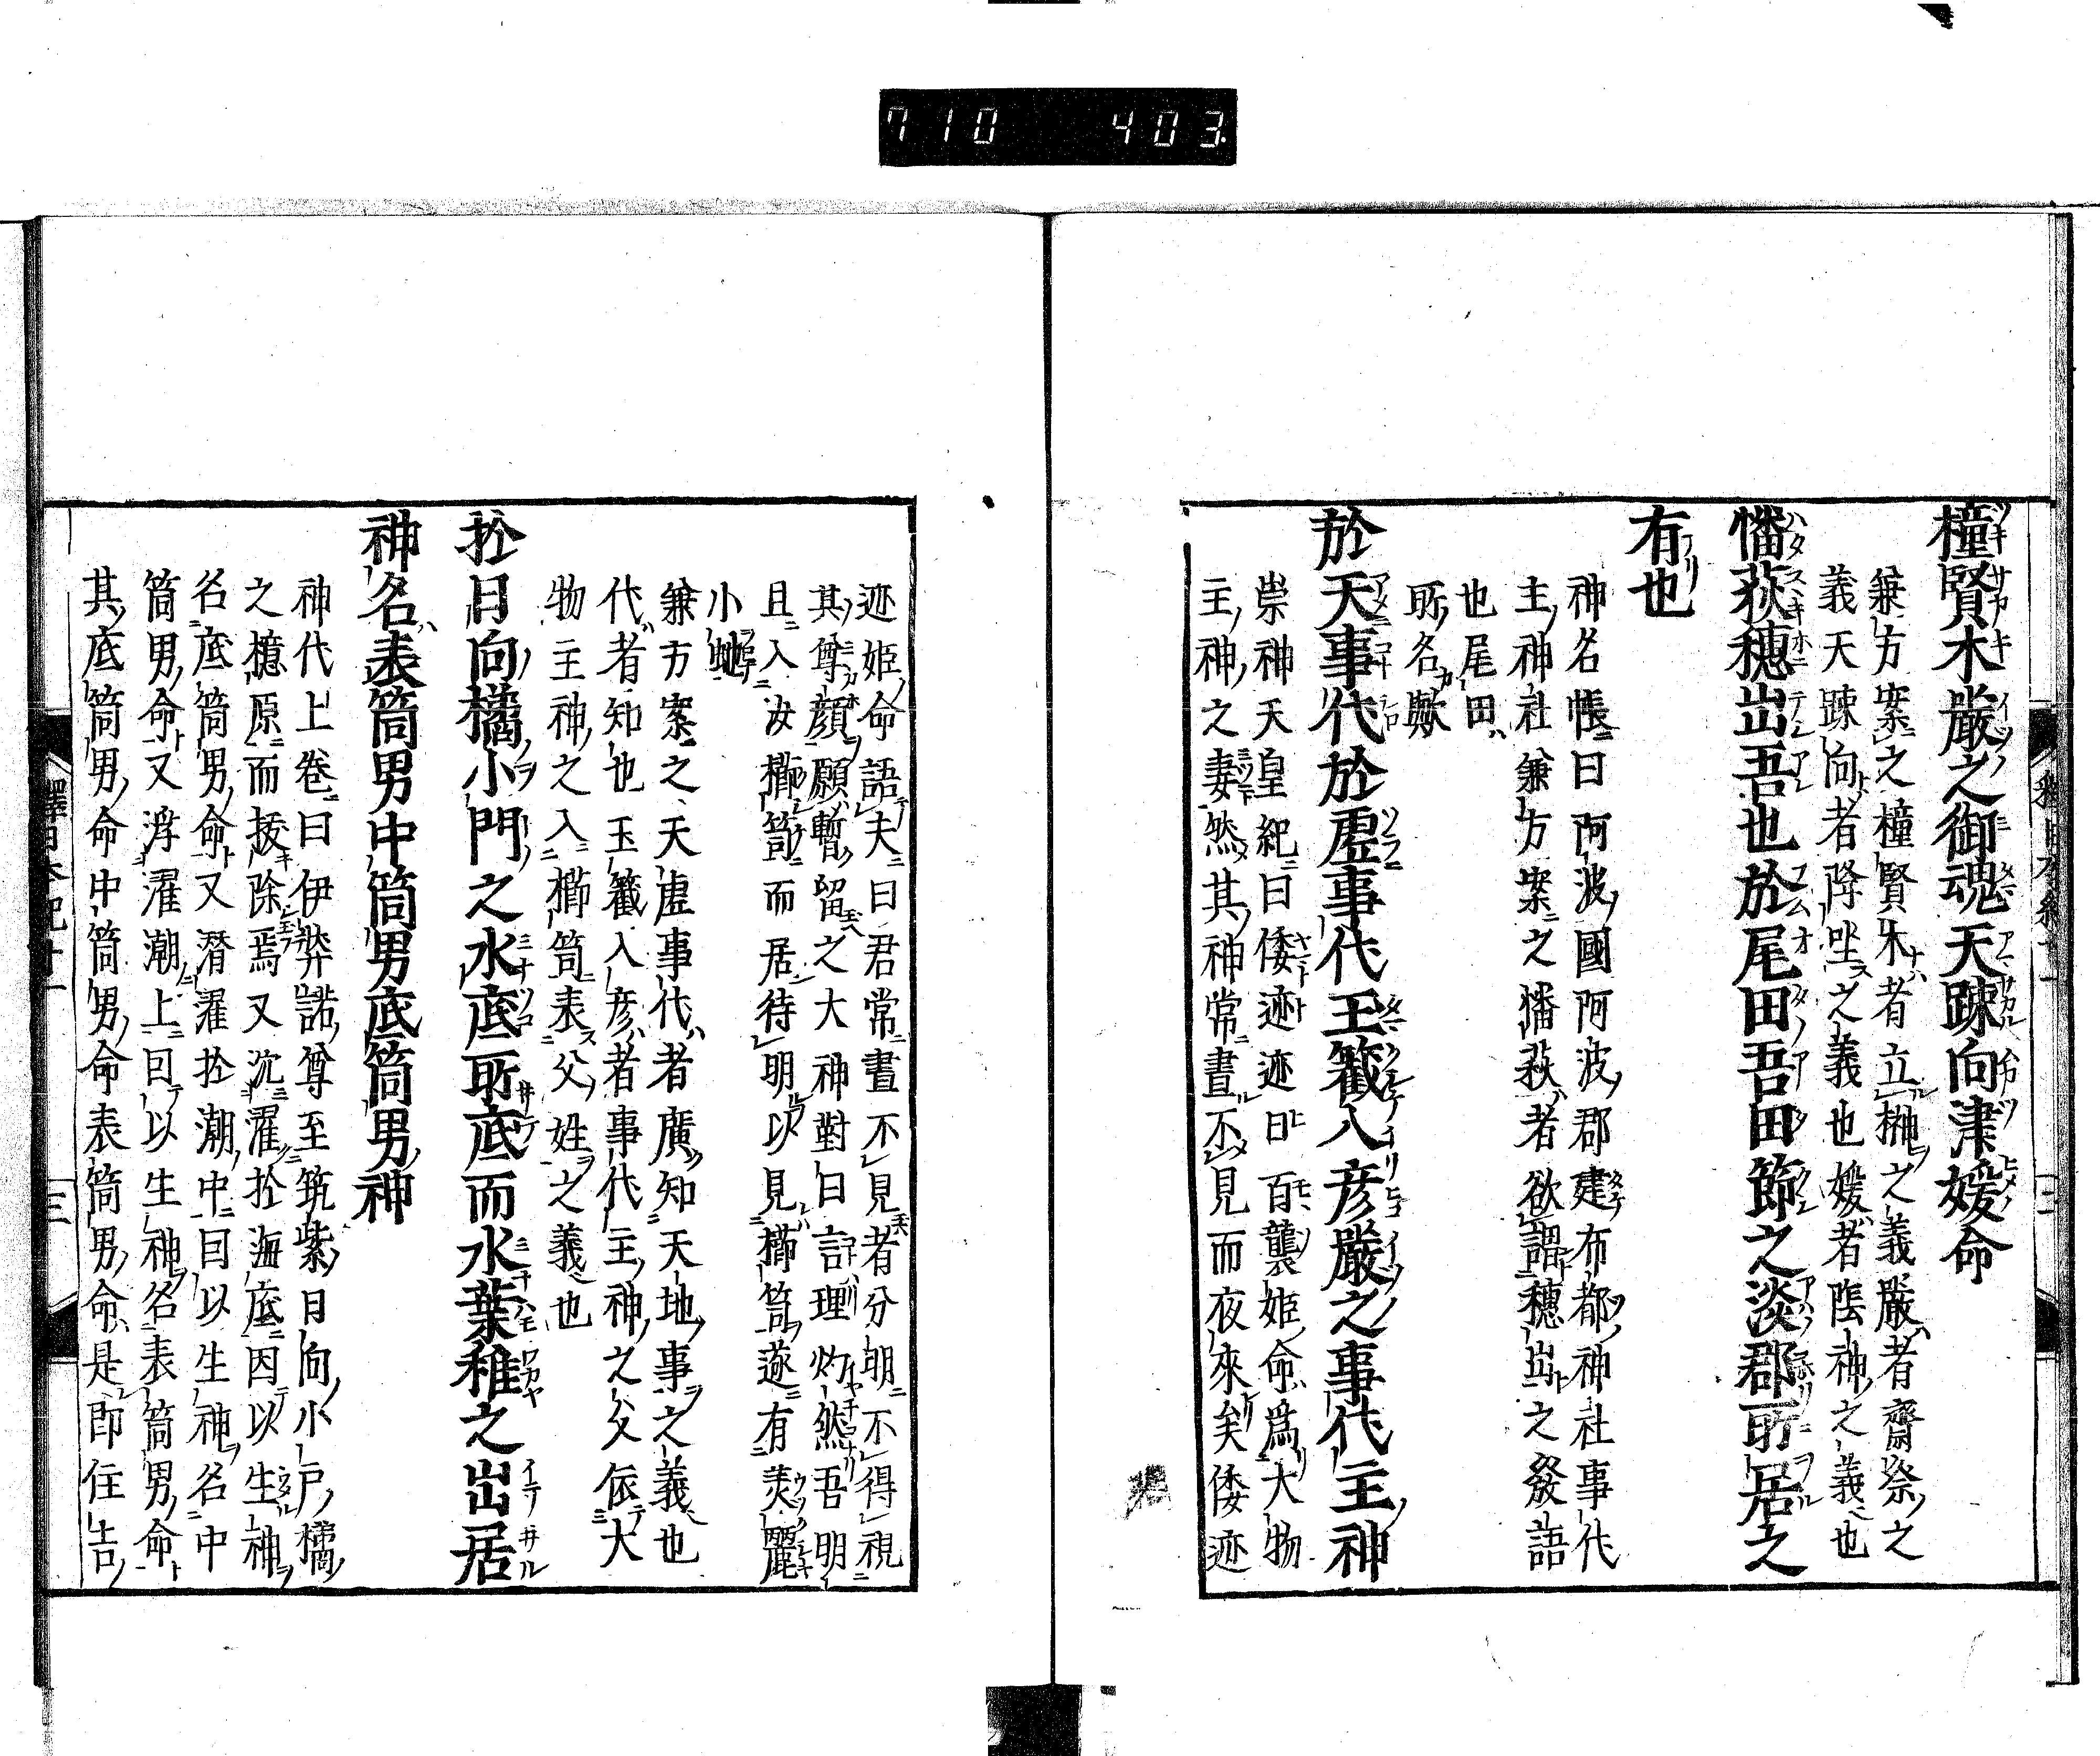 710 403
橦賢木嚴之御魂天踈向津媛命
兼方案之橦賢木者立榊之義嚴者齋祭之
義天踈向者降坐之義也媛者陰神之義也
幡荻穗出吾也於尾田吾田節之淡郡所居之
有也
神名帳曰阿波國阿波郡建布都神社事代
主神社兼方案之幡荻者欲謂穗出之發語
也尾田
所名歟
於天事代於虛事代玉籤入彦嚴之事代主神
崇神天皇紀曰倭迹迹日百襲姫命爲大物
主神之妻然其神常晝不見而夜來矣倭迹
迹姫命語夫曰君常晝不見者分明不得視
其尊顔願暫留之大神對曰言理灼然吾明
旦入汝櫛笥而居待明以見櫛笥遂有美麗
小虵
兼方案之天虛事代者廣知天地事之義也
代者知也玉籤入彦者事代主神之父依大
物主神之入櫛笥表父姓之義也
於日向橘小門之水底所底而水葉稚之出居
神名表筒男中筒男底筒男神
神代上卷曰伊弉諾尊至筑紫日向小戸橘
之檍原而拔除焉又沉濯於海底因以生神
名底筒男命又潛濯於潮中因以生神名中
筒男命又浮濯潮上因以生神名表筒男命
其底筒男命中筒男命表筒男命是即住吉
釋日本紀十一
三